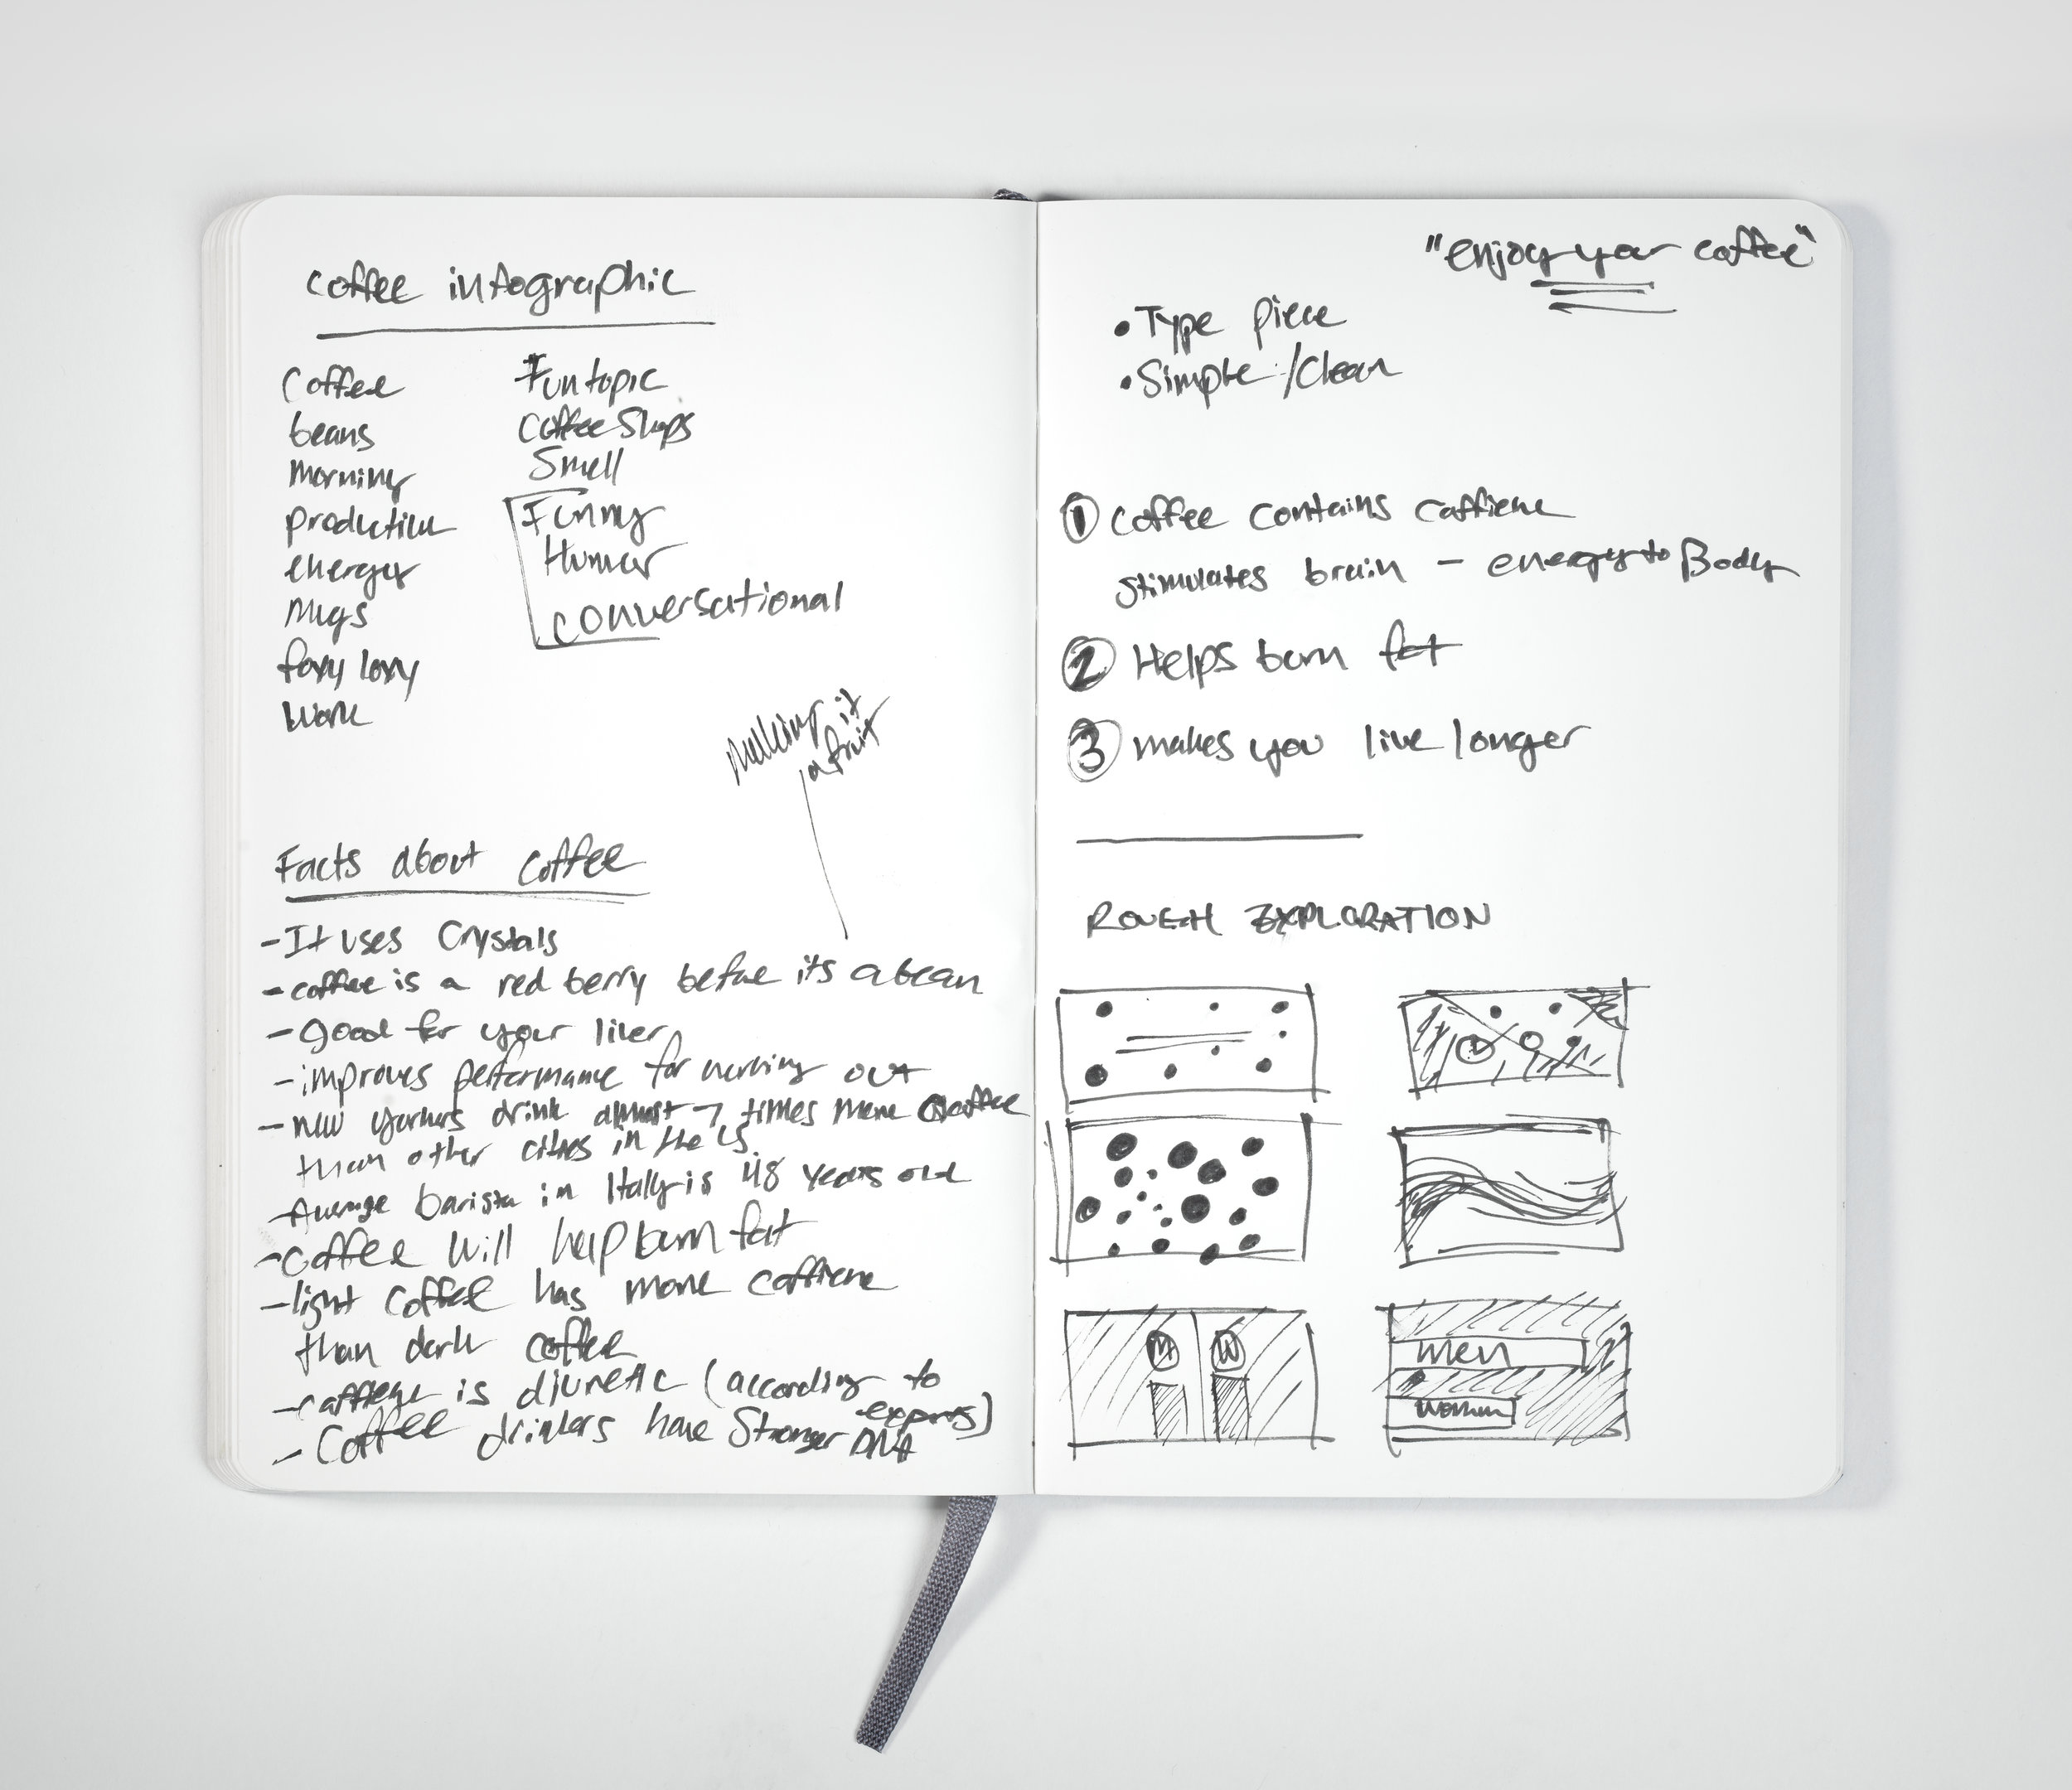 Coffee infographic
Coffee
beans
morning
productive
energy
Mugs
foxy loxy
Work
Fun topic
Coffee Shops
Smell
Funny
Humor
conversational
Making it
a fruit
Facts about coffee
- It uses Crystals
- coffee is a red berry before its a bean
- good for your liver
- improves performance for working out
- new yorkers drink almost 7 times more coffee
than other cities in the US
- Average barista in Italy is 48 years old
- coffee will help burn fat
- light coffee has more caffiene
than dark coffee
- caffiene is diuretic (according to
express)
- Coffee drinkers have Stronger DNA
"enjoy your coffee"
• Type piece
• Simple/Clean
1 coffee contains caffiene
stimulates brain - energy to Body
2 Helps burn fat
3 makes you live longer
ROUGH EXPLORATION
1
M W
men
women